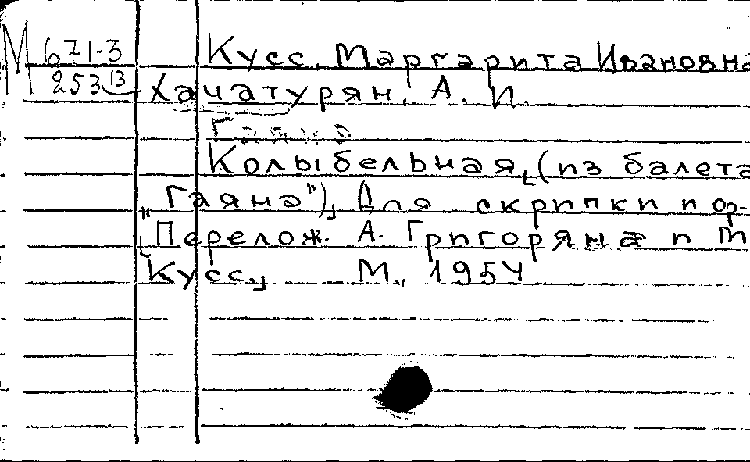 М 671-3 Кусс, Маргарита Ивановна
253(3 Хачатурян, А. И.
Гаянэ
Колыбельная, (из балета
"Гаянэ"), Для скрипки и ф-
Перелож. А. Григоряна и М
Кусс, М., 1954